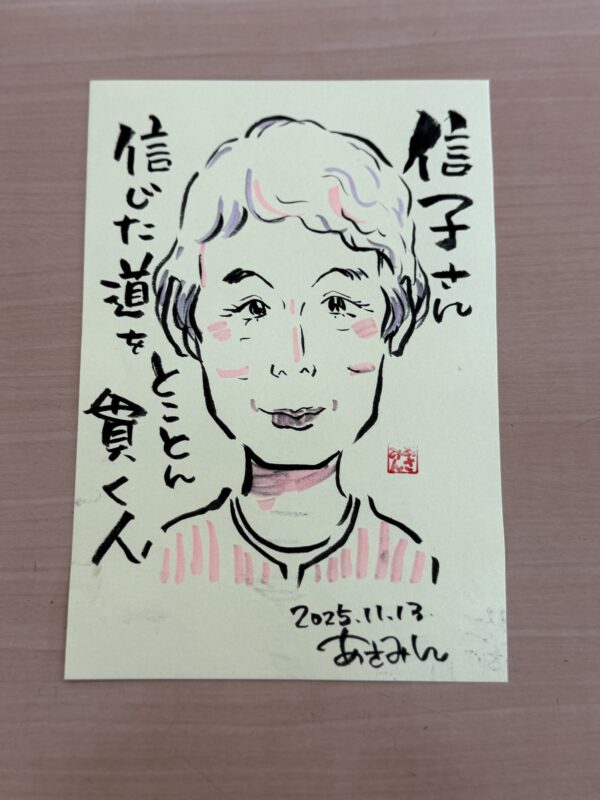 信子さん
信じた道を
とことん
貫く人
2025.11.13.
あさみん
あさみん